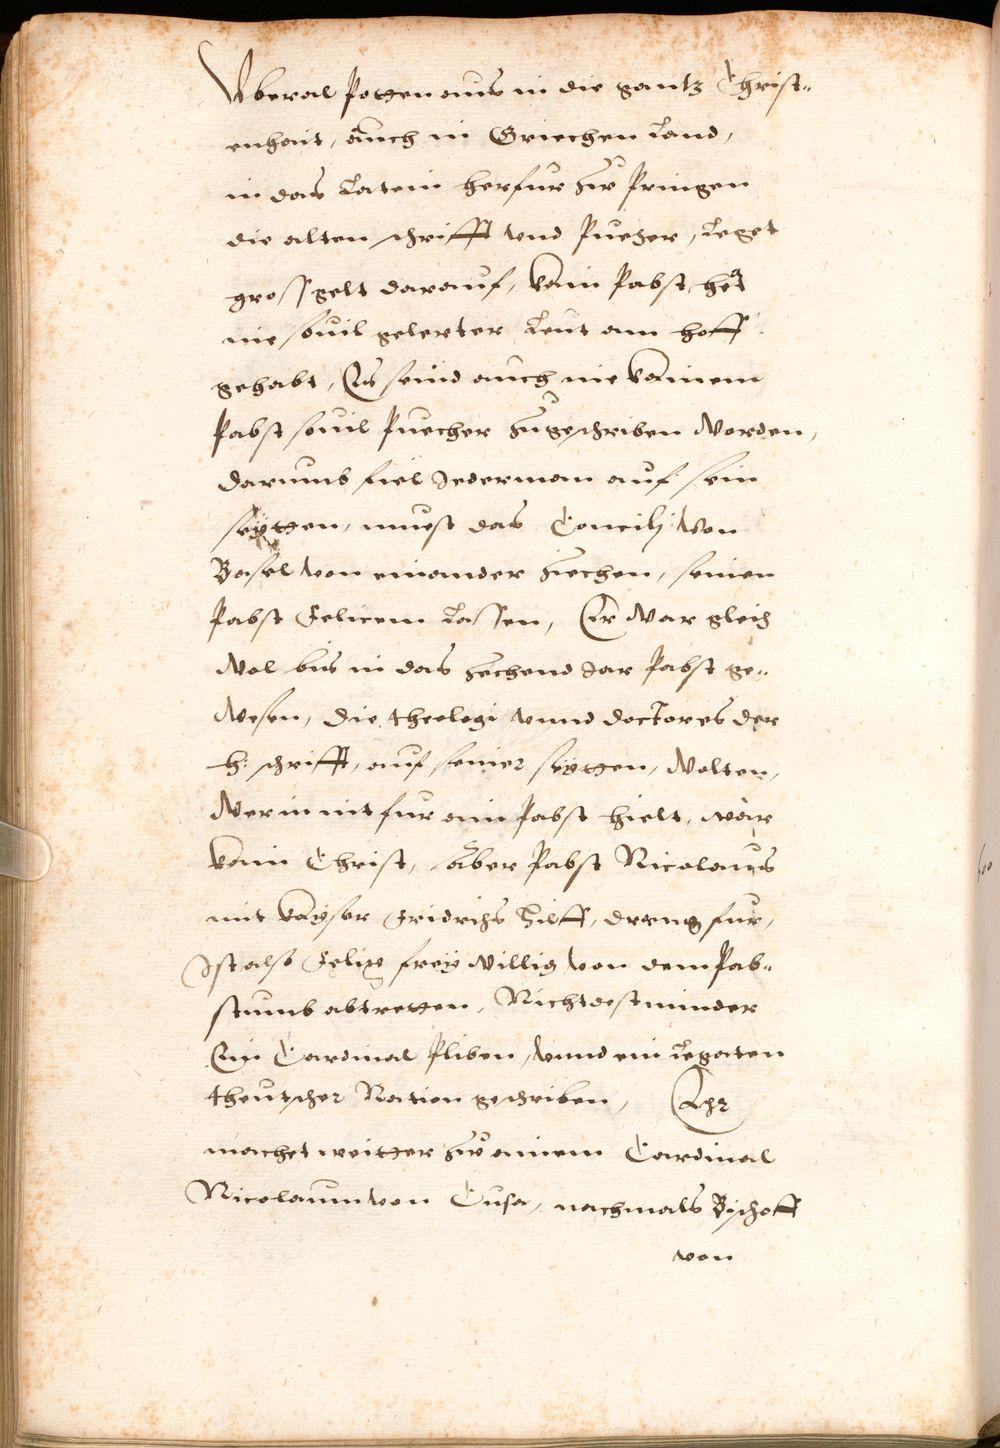 Uberal Potten aus in die gantz Christ-
enhait, auch in Griechen Land,
in das Latein herfur zw Pringen
die alten schrifft vnd Puecher, Leget
gross gelt darauf, kain Pabst het
nie souil gelerter Leut am hoff
gehabt, Es seind auch nie kainem
Pabst souil Puecher zugeschriben worden,
darumb fiel Jederman auf sein
seytten, muest das Concilj von
Basel von einander ziechen, seinen
Pabst Felicem Lassen, Er war gleich
wol bis in das zechend Jar Pabst ge-
wesen, die theologi vnnd doctores der
h: schrifft, auf seiner seytten, wolten,
wer in nit fur ain Pabst hielt, wär
kain Christ, Aber Pabst Nicolaus
mit kayser Fridrichs hilff, drang fur,
Ist also Felix frey willig von dem Pab-
stumb abtretten, Nichtdestminder
Ein Cardinal Pliben, vnnd ein Legaten
theutscher Nation geschriben, Ehr
machet weitter zw ainem Cardinal
Nicolaum von Cusa, nachmals Bischoff
von